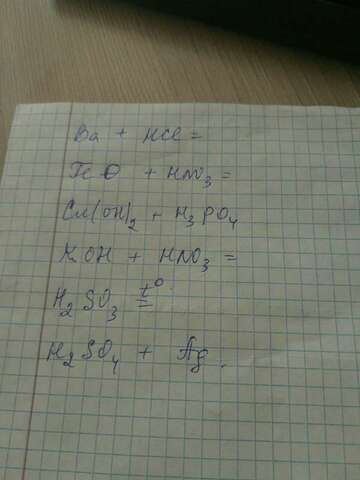 Ba + HCl =
FeO + HNO₃ =
Cu(OH)₂ + H₃PO₄
KOH + HNO₃ =
H₂SO₃ t° =
H₂SO₄ + Ag.